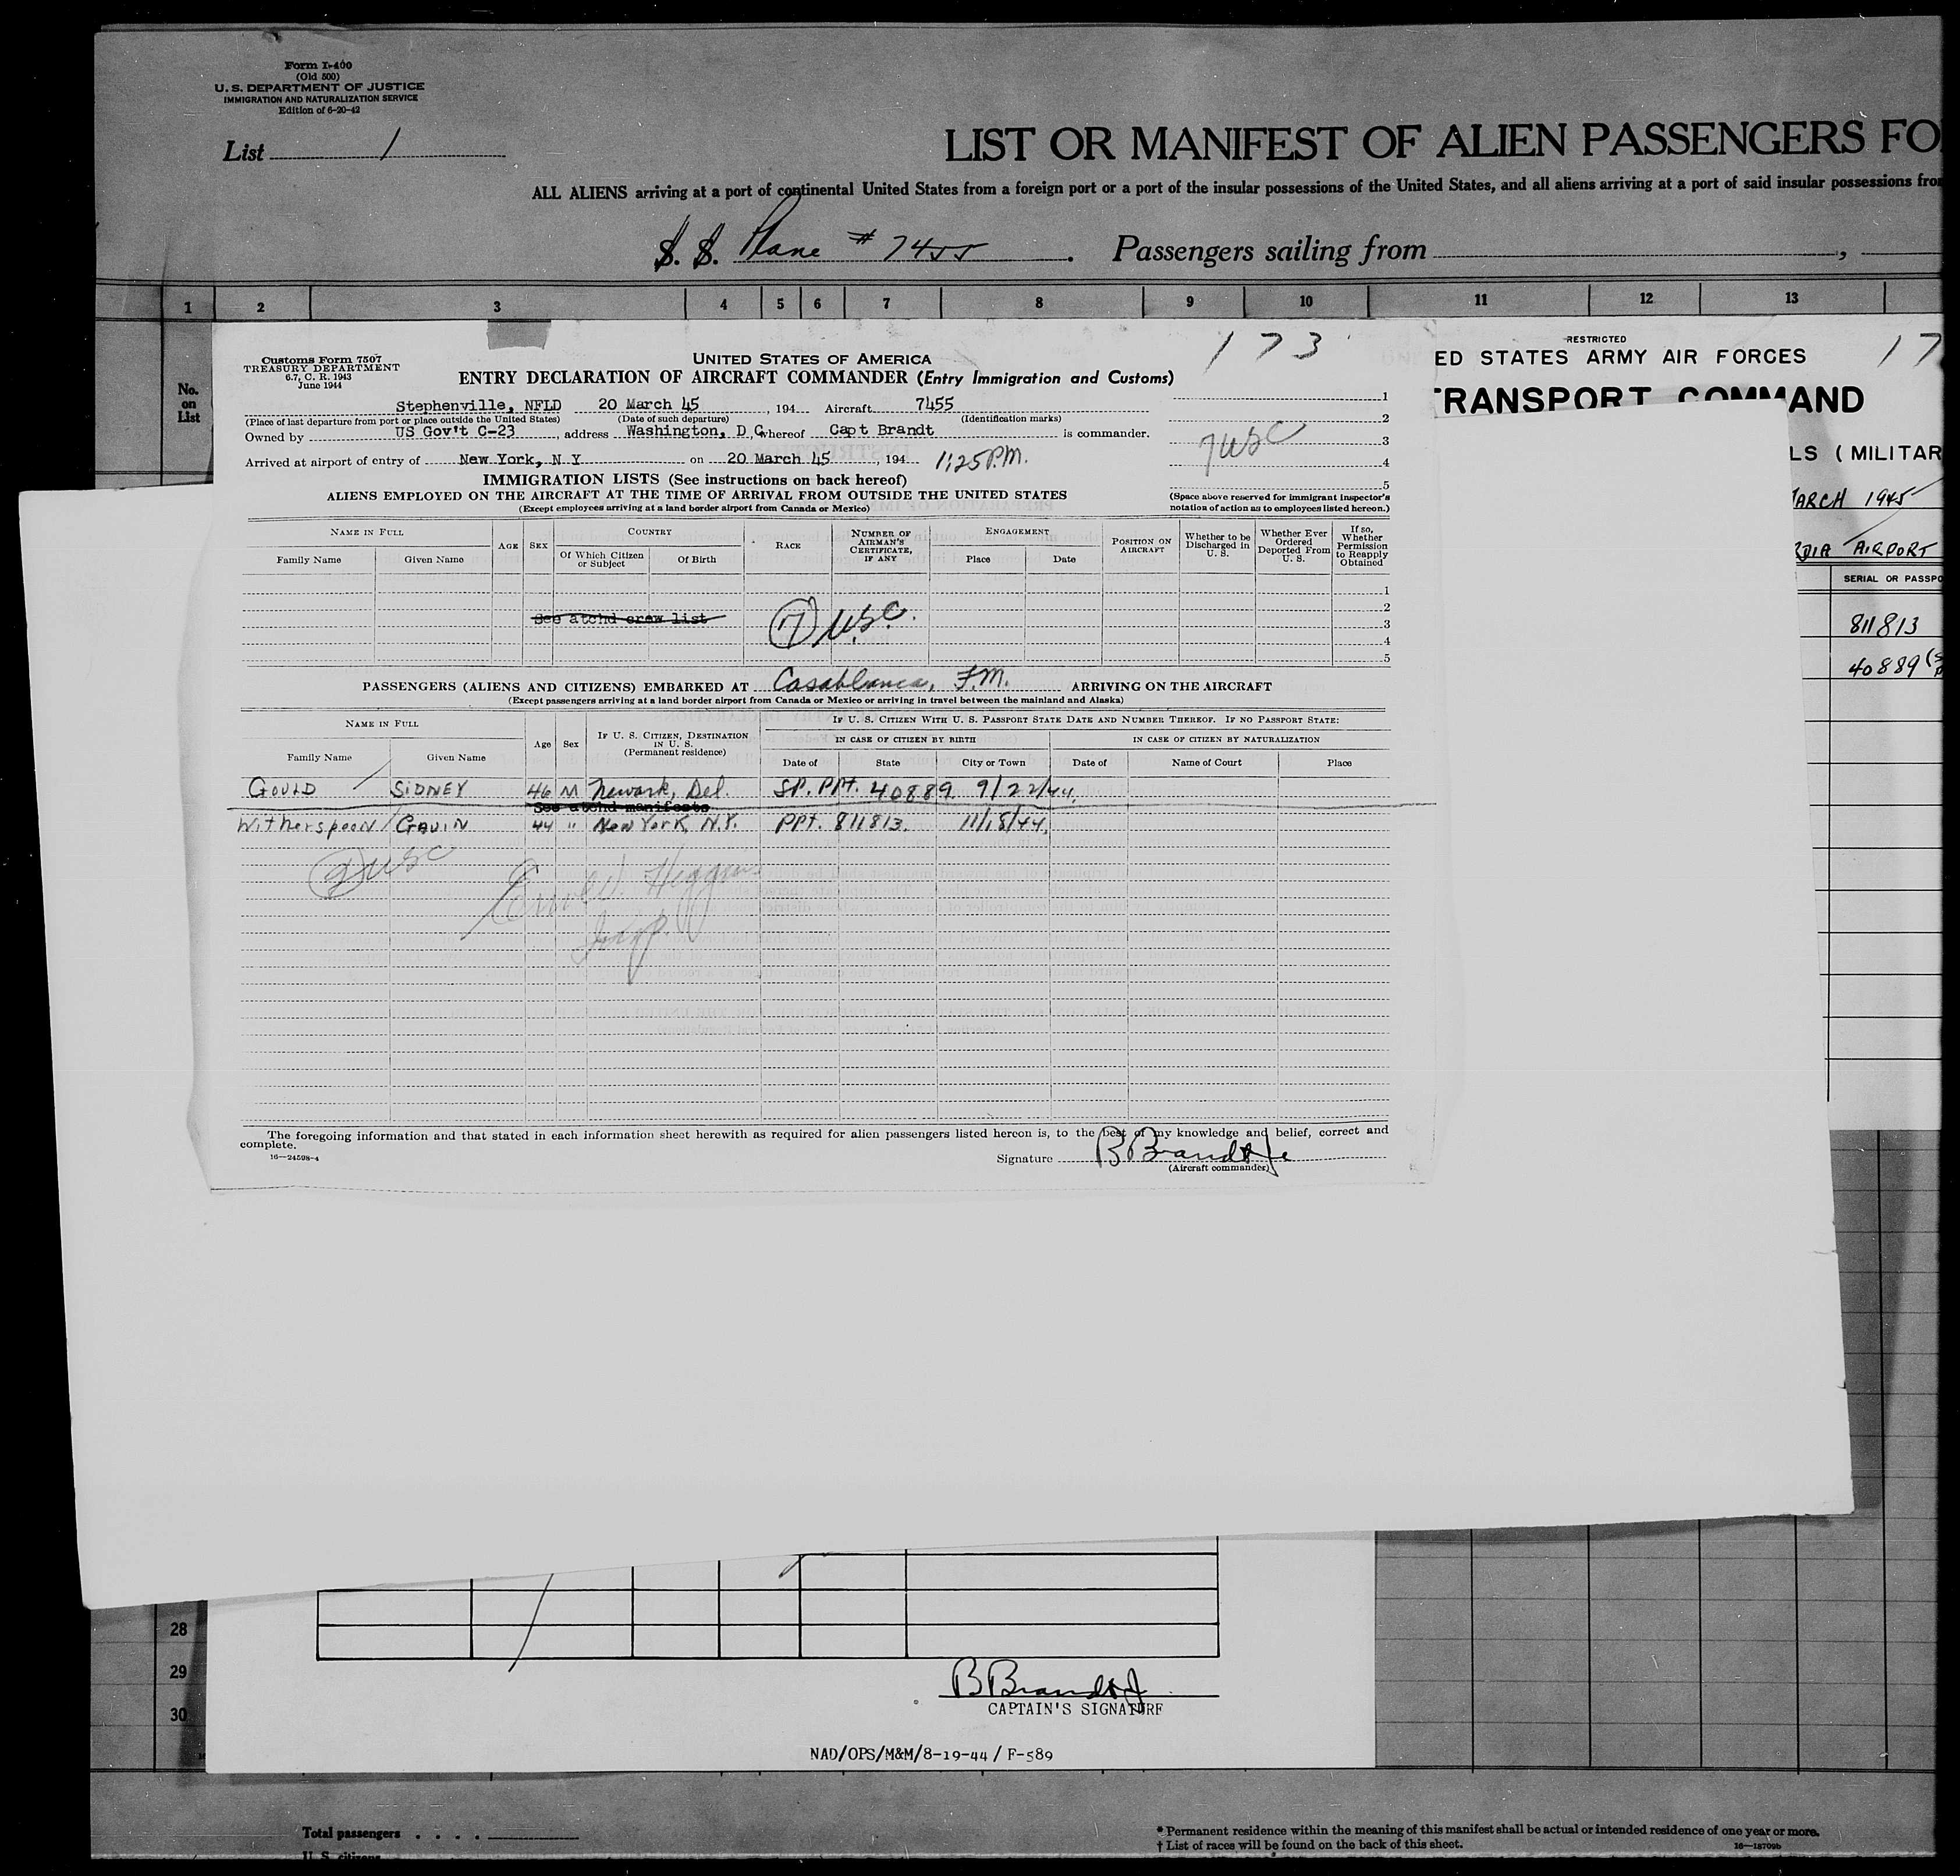 Form I-400
(Old 500)
U. S. DEPARTMENT OF JUSTICE
IMMIGRATION AND NATURALIZATION SERVICE
Edition of 6-20-42
List 1
LIST OR MANIFEST OF ALIEN PASSENGERS FO
ALL ALIENS arriving at a port of continental United States from a foreign port or a port of the insular possessions of the United States, and all aliens arriving at a port of said insular possessions from
S. S. Plane # 7455. Passengers sailing from ,
1 2 3 4 5 6 7 8 9 10 11 12 13
No. on List
173
Customs Form 7507
TREASURY DEPARTMENT
6.7, C. R. 1943
June 1944
UNITED STATES OF AMERICA
ENTRY DECLARATION OF AIRCRAFT COMMANDER (Entry Immigration and Customs)
Stephenville, NFLD 20 March 45, 194 Aircraft 7455
(Place of last departure from port or place outside the United States) (Date of such departure) (Identification marks)
Owned by US Gov't C-23, address Washington, D C, whereof Capt Brandt is commander.
Arrived at airport of entry of New York, N Y on 20 March 45, 194 1:25 P.M.
1
2
3
4
5
7 USC
(Space above reserved for immigrant inspector's notation of action as to employees listed hereon.)
IMMIGRATION LISTS (See instructions on back hereof)
ALIENS EMPLOYED ON THE AIRCRAFT AT THE TIME OF ARRIVAL FROM OUTSIDE THE UNITED STATES
(Except employees arriving at a land border airport from Canada or Mexico)
NAME IN FULL AGE SEX COUNTRY RACE NUMBER OF AIRMAN'S CERTIFICATE, IF ANY ENGAGEMENT POSITION ON AIRCRAFT Whether to be Discharged in U. S. Whether Ever Ordered Deported From U. S. If so, Whether Permission to Reapply Obtained
Family Name Given Name Of Which Citizen or Subject Of Birth Place Date
1
2
See atchd crew list 7 U.S.C. 3
4
5
PASSENGERS (ALIENS AND CITIZENS) EMBARKED AT Casablanca, F.M. ARRIVING ON THE AIRCRAFT
(Except passengers arriving at a land border airport from Canada or Mexico or arriving in travel between the mainland and Alaska)
NAME IN FULL Age Sex IF U. S. CITIZEN, DESTINATION IN U. S. (Permanent residence) IF U. S. CITIZEN WITH U. S. PASSPORT STATE DATE AND NUMBER THEREOF. IF NO PASSPORT STATE:
IN CASE OF CITIZEN BY BIRTH IN CASE OF CITIZEN BY NATURALIZATION
Family Name Given Name Date of State City or Town Date of Name of Court Place
GOULD SIDNEY 46 M Newark, Del. SP. PPt. 40889 9/22/44.
See atchd manifests
Witherspoon GAVIN 44 " New York, N.Y. PPt. 811813. 11/18/44.
2 USC
Higgins
Insp.
The foregoing information and that stated in each information sheet herewith as required for alien passengers listed hereon is, to the best of my knowledge and belief, correct and
complete.
16—24598-4
Signature B Brandt Jr
(Aircraft commander)
RESTRICTED
ED STATES ARMY AIR FORCES 17
TRANSPORT COMMAND
LS (MILITAR
MARCH 1945
RDIA AIRPORT
SERIAL OR PASSPO
811813
40889
28
29
30
B Brandt Jr
CAPTAIN'S SIGNATURE
NAD/OPS/M&M/8-19-44 / F-589
Total passengers . . . .
U. S. citizens
* Permanent residence within the meaning of this manifest shall be actual or intended residence of one year or more.
† List of races will be found on the back of this sheet. 16—18709b